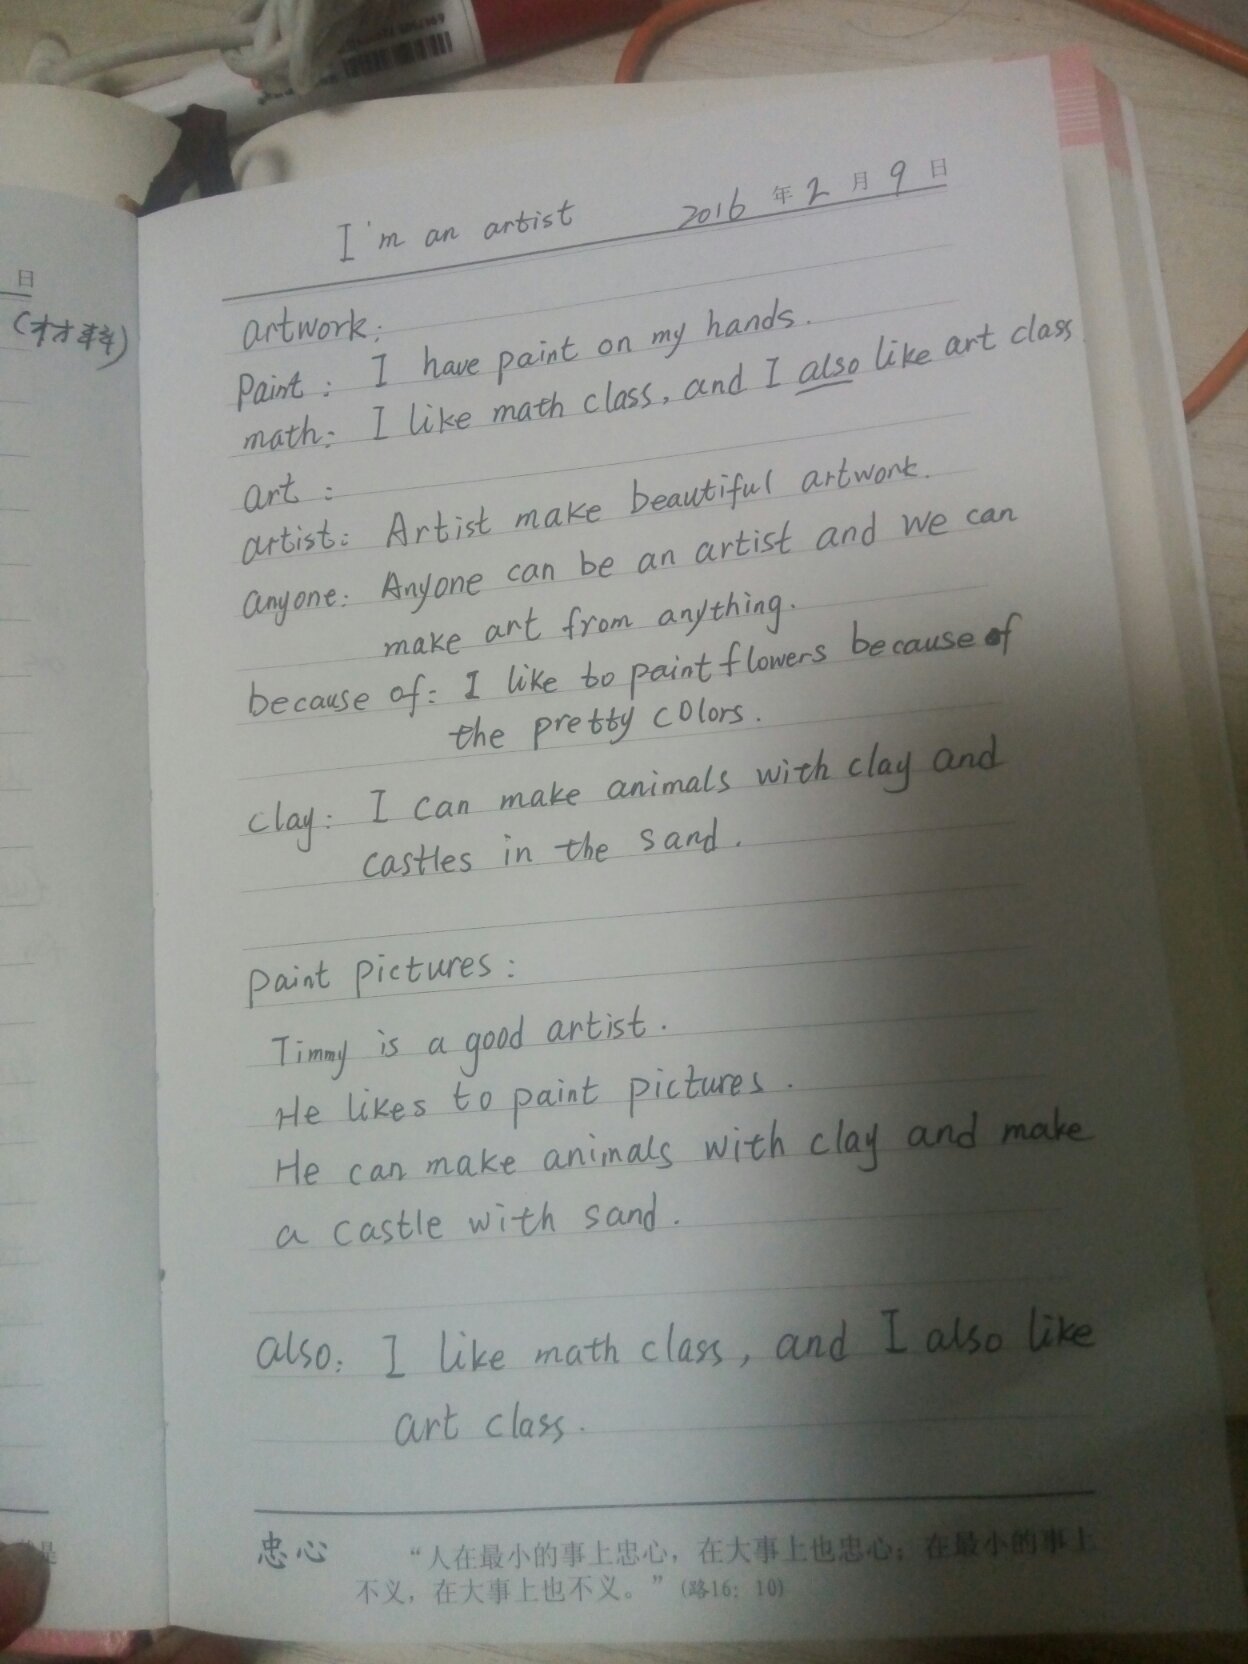 日
(材料)
I'm an artist 2016 年 2 月 9 日
artwork:
Paint: I have paint on my hands.
math: I like math class, and I also like art class
art:
artist: Artist make beautiful artwork.
anyone: Anyone can be an artist and we can
make art from anything.
because of: I like to paint flowers because of
the pretty colors.
clay: I can make animals with clay and
castles in the sand.
paint pictures:
Timmy is a good artist.
He likes to paint pictures.
He can make animals with clay and make
a castle with sand.
also: I like math class, and I also like
art class.
忠心 “人在最小的事上忠心，在大事上也忠心；在最小的事上
不义，在大事上也不义。”(路16：10)
是